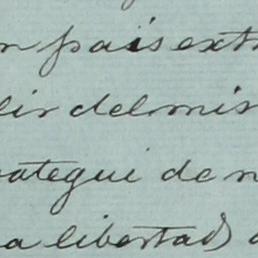 n país extr
lir del mis
ategui de n
a libertad